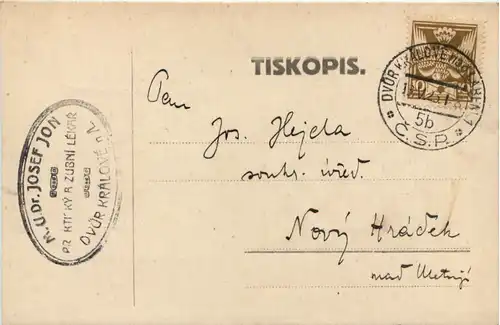 TISKOPIS.
DVŮR KRÁLOVÉ
5b
Č.S.P.
M.U.Dr. JOSEF JON
PRAKTICKÝ A ZUBNÍ LÉKAŘ
DVŮR KRÁLOVÉ n/L.
Pan
Jos. Hejda
soukr. úřed.
Nový Hrádek
nad Metují